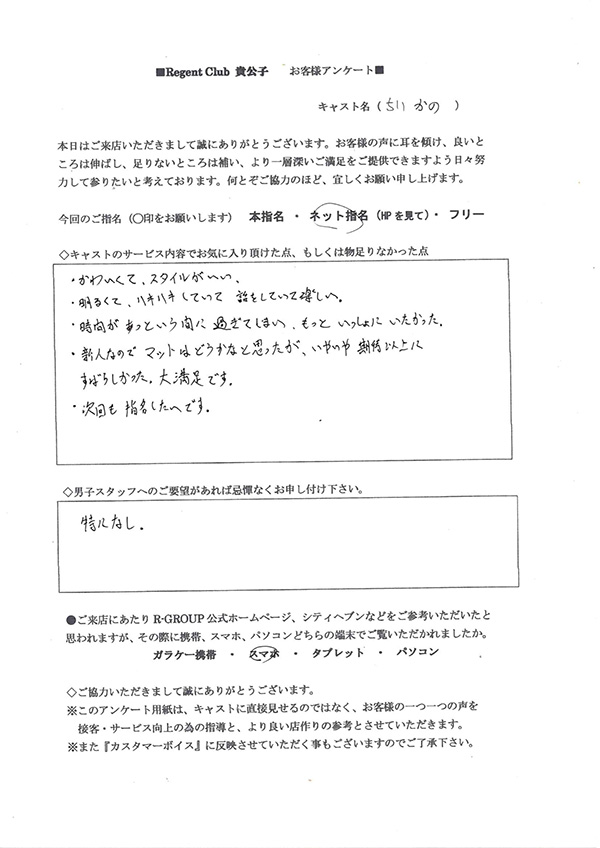 ■Regent Club 貴公子　お客様アンケート■
キャスト名（ かの ）
本日はご来店いただきまして誠にありがとうございます。お客様の声に耳を傾け、良いと
ころは伸ばし、足りないところは補い、より一層深いご満足をご提供できますよう日々努
力して参りたいと考えております。何とぞご協力のほど、宜しくお願い申し上げます。
今回のご指名（〇印をお願いします）　本指名 ・ ネット指名（HPを見て）・ フリー
◇キャストのサービス内容でお気に入り頂けた点、もしくは物足りなかった点
・かわいくて、スタイルがいい、
・明るくて、ハキハキしていて 話をしていて楽しい。
・時間があっという間に過ぎてしまい、もっといっしょにいたかった。
・新人なのでマットはどうかなと思ったが、いやいや 期待以上に
すばらしかった。大満足です。
・次回も指名したいです。
◇男子スタッフへのご要望があれば忌憚なくお申し付け下さい。
特になし。
●ご来店にあたり R-GROUP 公式ホームページ、シティヘブンなどをご参考いただいたと
思われますが、その際に携帯、スマホ、パソコンどちらの端末でご覧いただかれましたか。
ガラケー携帯 ・ スマホ ・ タブレット ・ パソコン
◇ご協力いただきまして誠にありがとうございます。
※このアンケート用紙は、キャストに直接見せるのではなく、お客様の一つ一つの声を
接客・サービス向上の為の指導と、より良い店作りの参考とさせていただきます。
※また『カスタマーボイス』に反映させていただく事もございますのでご了承下さい。